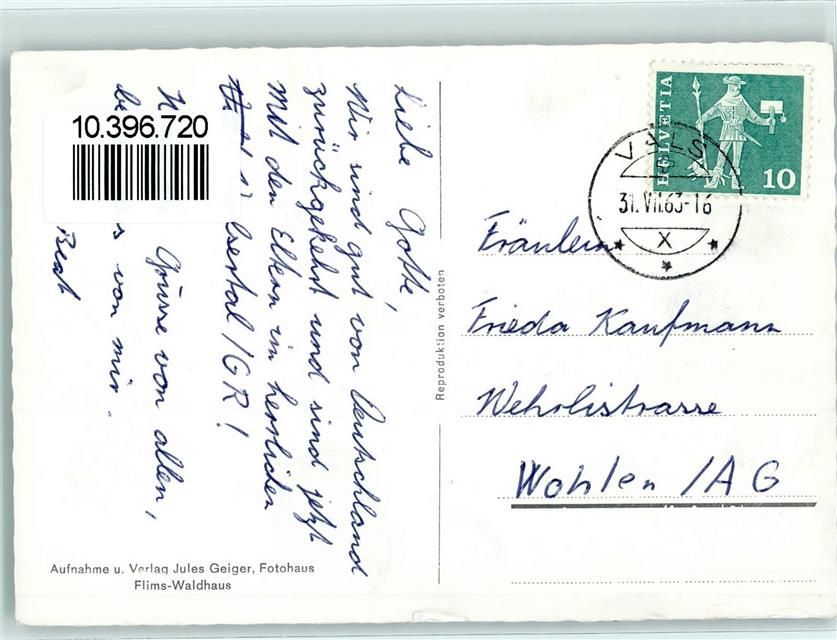 Liebe Gotte,
Wir sind gut von Deutschland
zurückgekehrt und sind jetzt
mit den Eltern im herrlichen
/GR!
Grüsse von allen,
von mir.
Beat
10.396.720
HELVETIA
10
VALS
31.VII.63-16
X
Fräulein
Frieda Kaufmann
Wehrlistrasse
Wohlen /AG
Reproduktion verboten
Aufnahme u. Verlag Jules Geiger, Fotohaus
Flims-Waldhaus